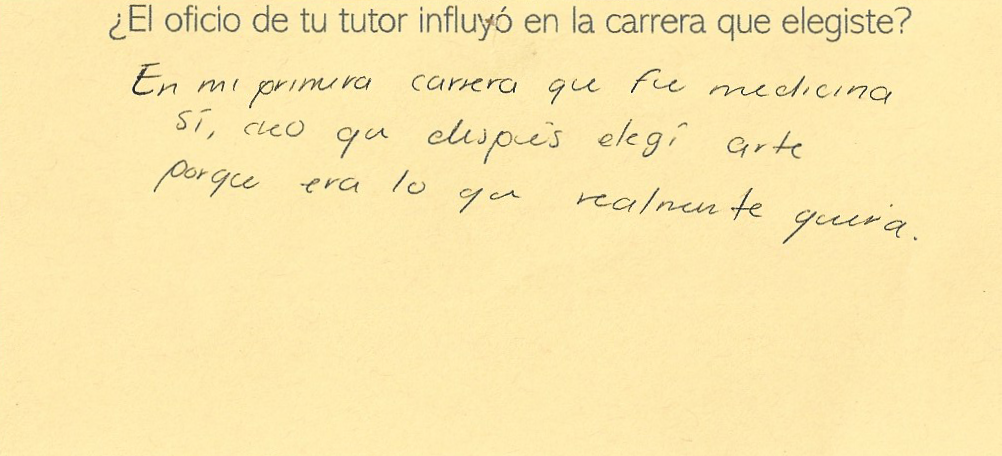 ¿El oficio de tu tutor influyó en la carrera que elegiste?
En mi primera carrera que fue medicina
sí, creo que después elegí arte
porque era lo que realmente quería.